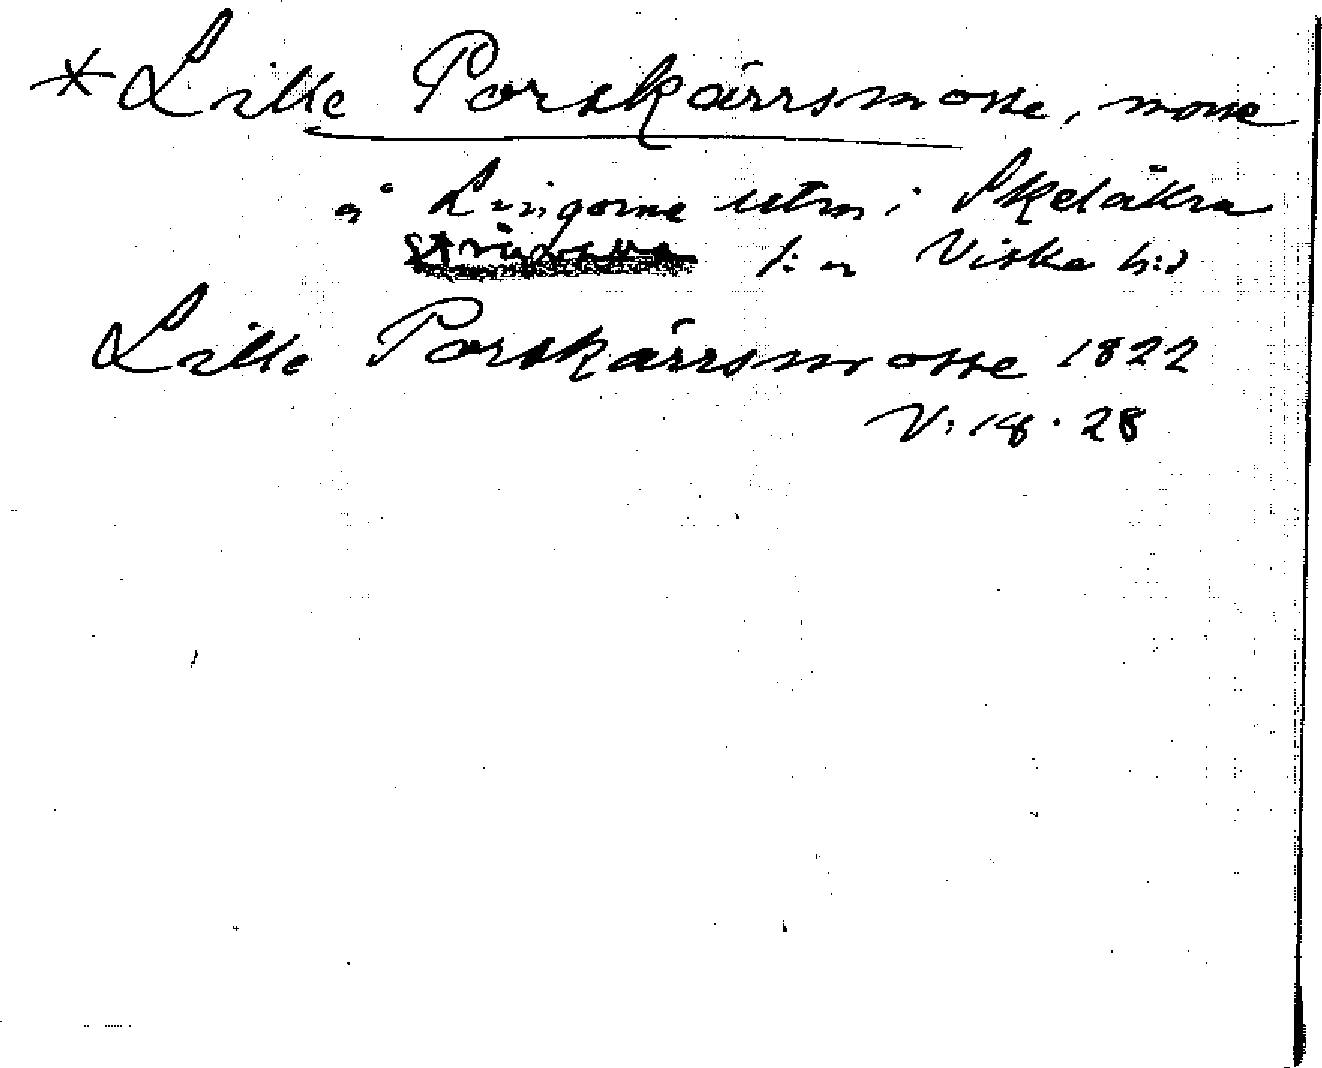 *Lille Porskärrsmosse, mosse
å Lingorna utm i Skeläkra
s:n Viske h:d
Lille Porskärrsmosse 1822
V: 18 · 28